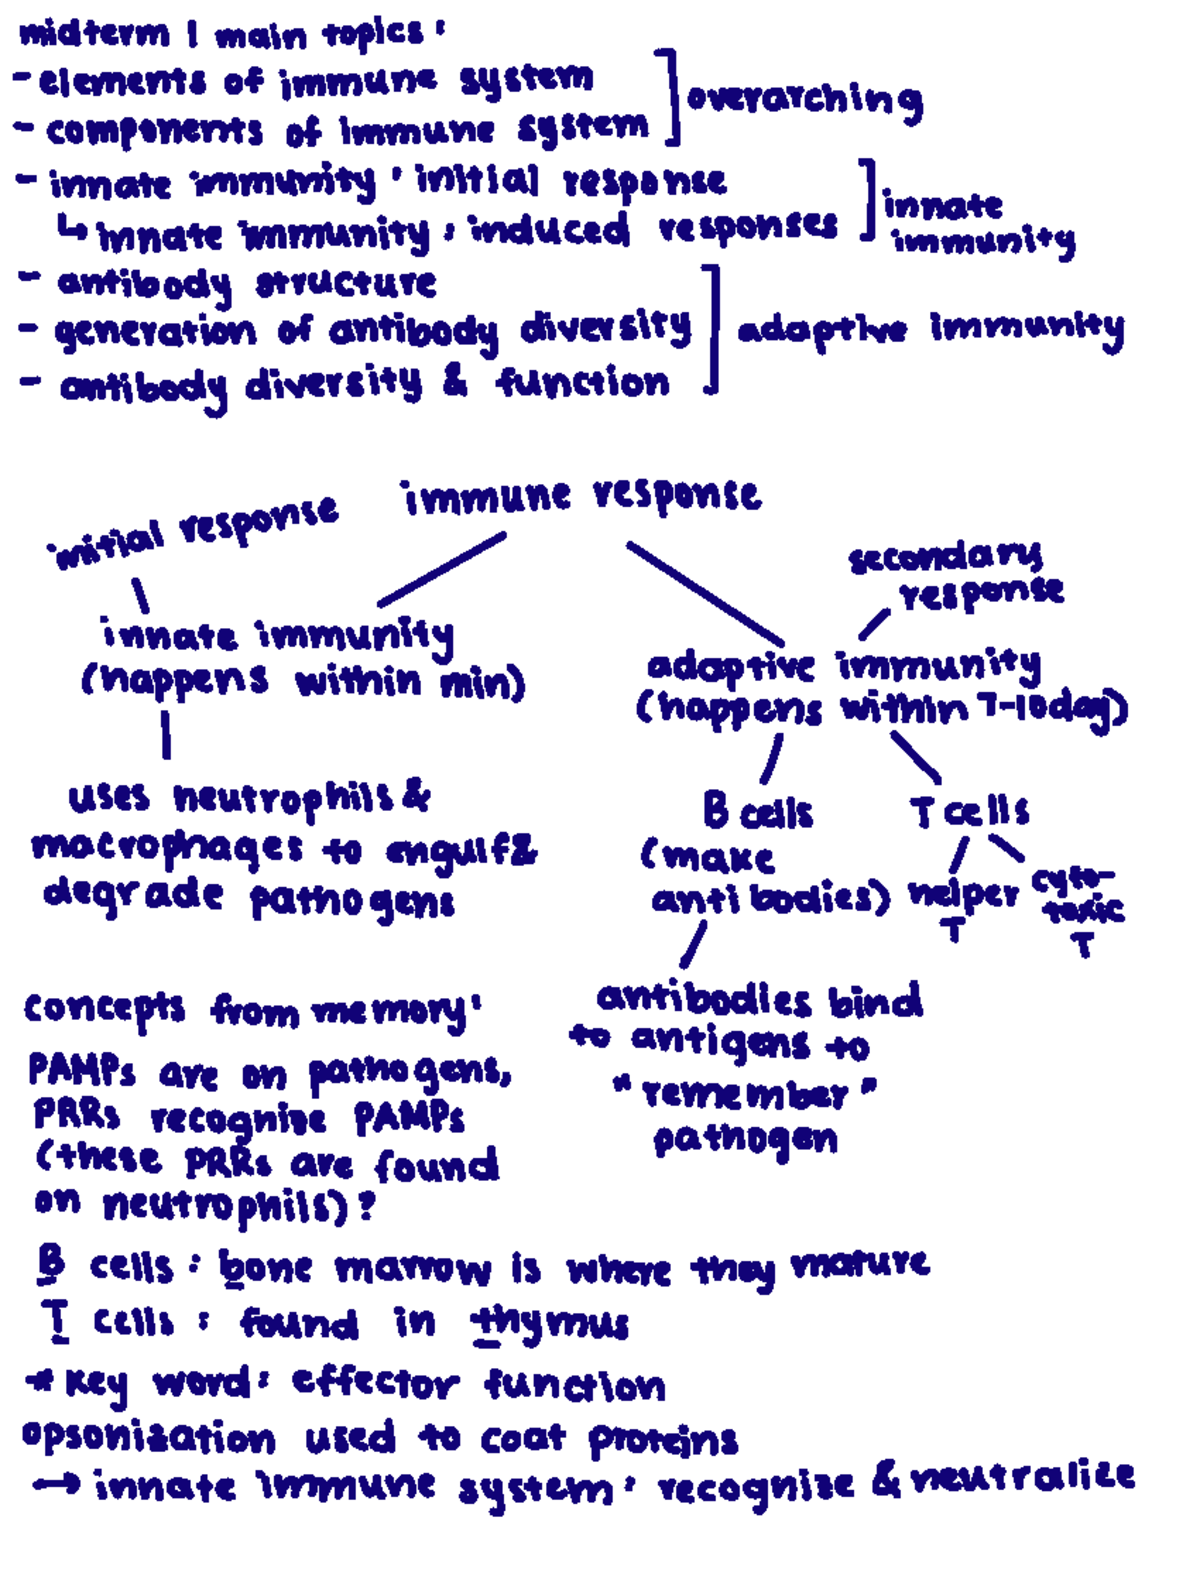 midterm 1 main topics:
- elements of immune system
- components of immune system
overarching
- innate immunity: initial response
↳ innate immunity: induced responses
innate
immunity
- antibody structure
- generation of antibody diversity
- antibody diversity & function
adaptive immunity
immune response
initial response
innate immunity
(happens within min)
uses neutrophils &
macrophages to engulf &
degrade pathogens
secondary
response
adaptive immunity
(happens within 7-10day)
B cells
(make
antibodies)
T cells
helper
T
cyto-
toxic
T
antibodies bind
to antigens to
"remember"
pathogen
concepts from memory:
PAMPs are on pathogens,
PRRs recognize PAMPs
(these PRRs are found
on neutrophils)?
B cells: bone marrow is where they mature
T cells: found in thymus
* key word: effector function
opsonization used to coat proteins
→ innate immune system: recognize & neutralize